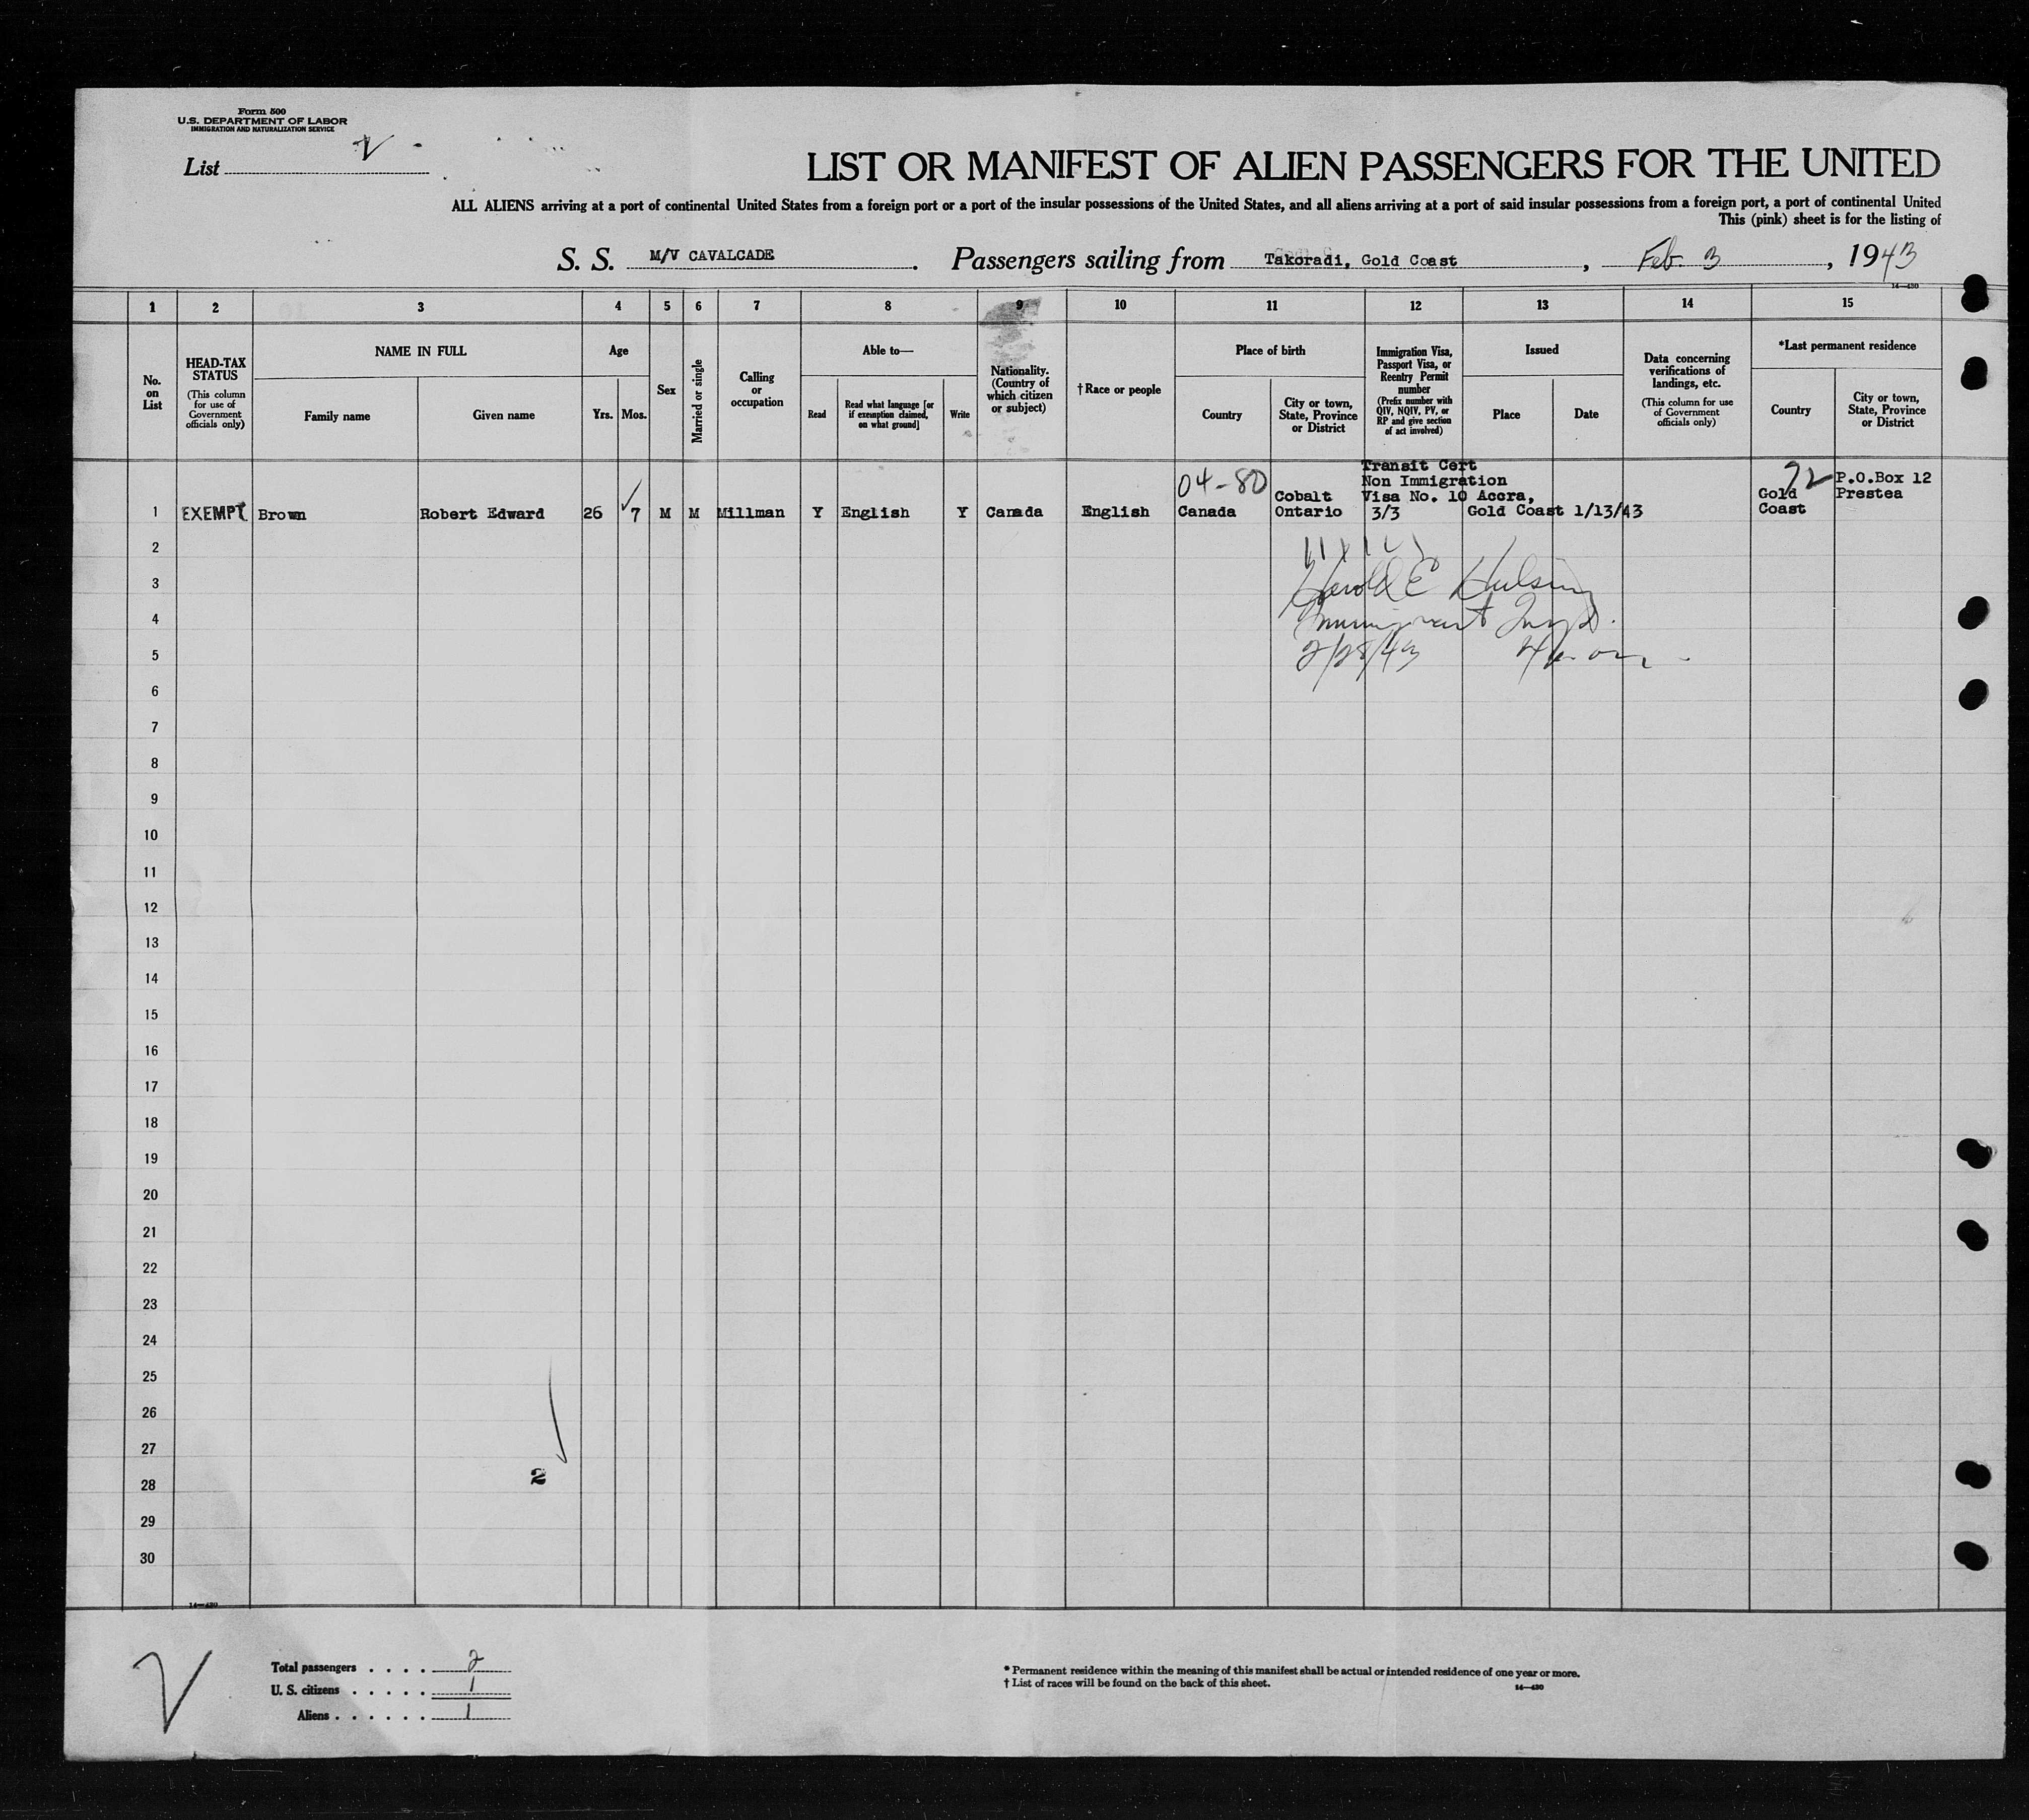 Form 500
U.S. DEPARTMENT OF LABOR
IMMIGRATION AND NATURALIZATION SERVICE
List 2
LIST OR MANIFEST OF ALIEN PASSENGERS FOR THE UNITED
ALL ALIENS arriving at a port of continental United States from a foreign port or a port of the insular possessions of the United States, and all aliens arriving at a port of said insular possessions from a foreign port, a port of continental United
This (pink) sheet is for the listing of
S. S. M/V CAVALCADE. Passengers sailing from Takoradi, Gold Coast, Feb. 3, 1943
14—430
1 2 3 4 5 6 7 8 9 10 11 12 13 14 15
No. on List
HEAD-TAX STATUS
(This column for use of Government officials only)
NAME IN FULL
Family name
Given name
Age
Yrs.
Mos.
Sex
Married or single
Calling or occupation
Able to—
Read
Read what language [or if exemption claimed, on what ground]
Write
Nationality. (Country of which citizen or subject)
†Race or people
Place of birth
Country
City or town, State, Province or District
Immigration Visa, Passport Visa, or Reentry Permit number
(Prefix number with QIV, NQIV, PV, or RP and give section of act involved)
Issued
Place
Date
Data concerning verifications of landings, etc.
(This column for use of Government officials only)
*Last permanent residence
Country
City or town, State, Province or District
1 EXEMPT Brown Robert Edward 26 7 M M Millman Y English Y Canada English
04-80
Canada
Cobalt
Ontario
Transit Cert
Non Immigration
Visa No. 10 Accra,
3/3 Gold Coast 1/13/43
72
Gold
Coast
P.O.Box 12
Prestea
2
3
Harold E
4
Immigrant Insp.
5
2/28/43
6
7
8
9
10
11
12
13
14
15
16
17
18
19
20
21
22
23
24
25
26
27
28
2
29
30
14—430
Total passengers . . . . 2
U. S. citizens . . . . . 1
Aliens . . . . . . 1
* Permanent residence within the meaning of this manifest shall be actual or intended residence of one year or more.
† List of races will be found on the back of this sheet.
14—430